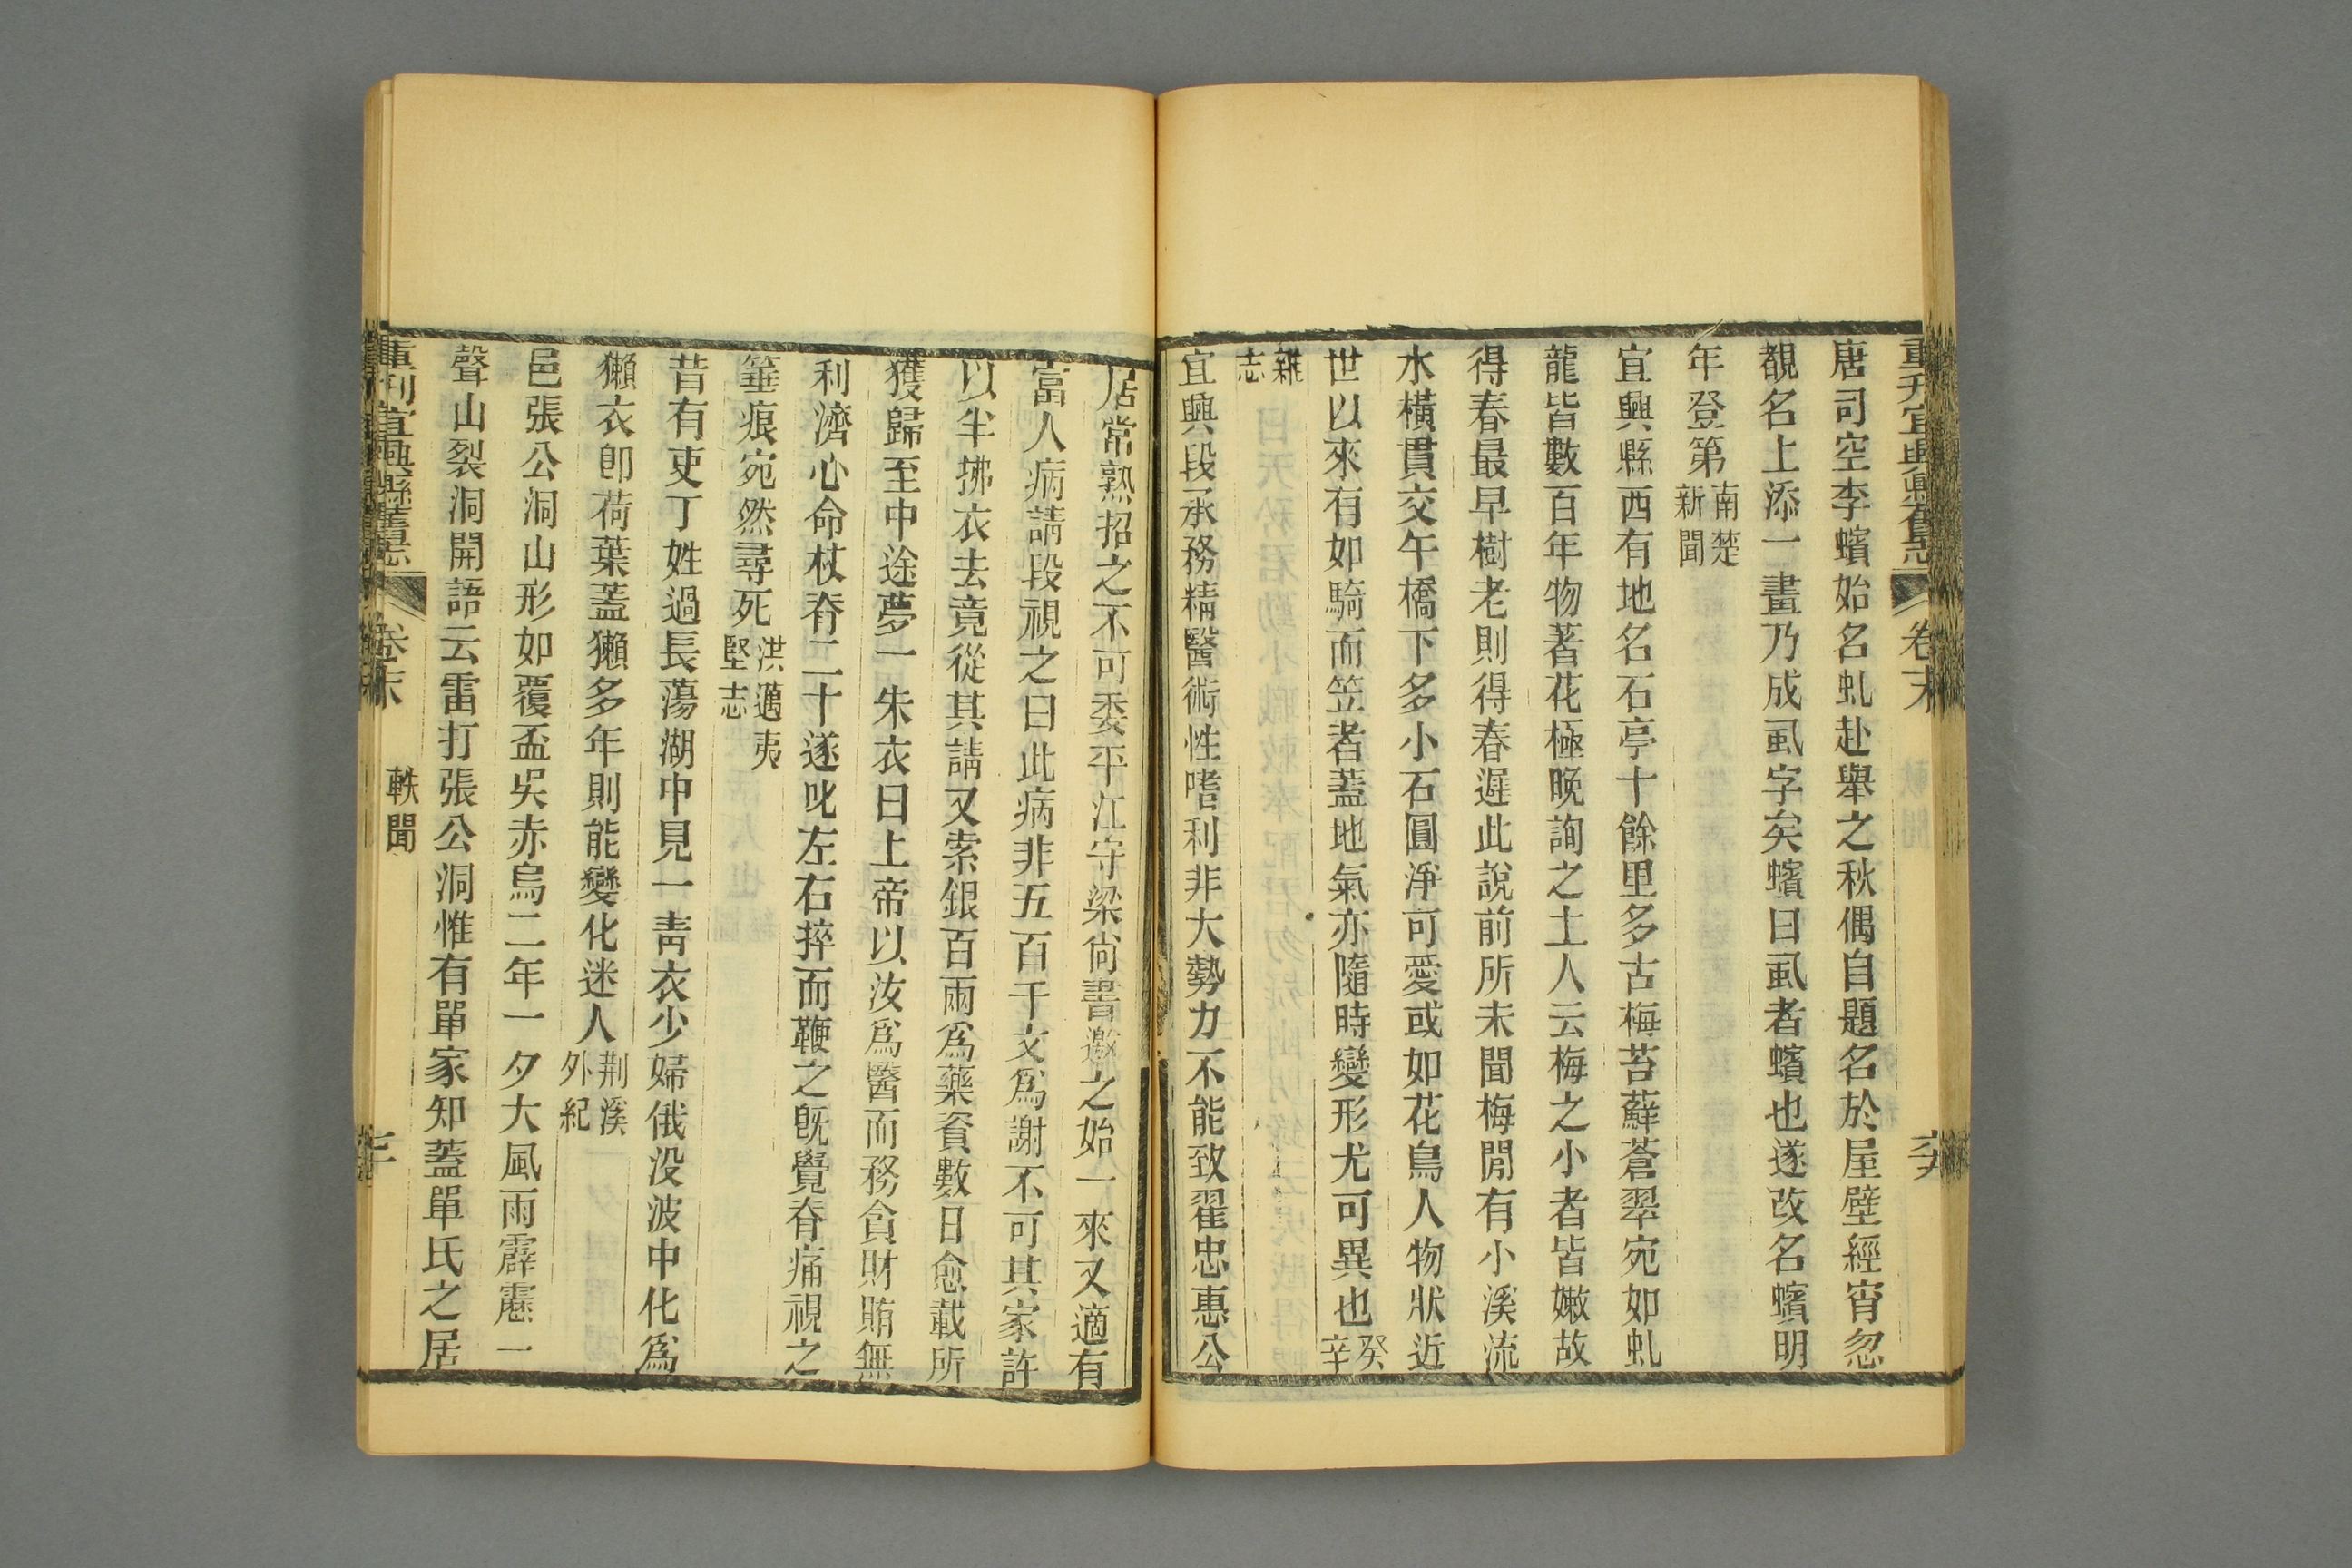 唐司空李蠙始名虬赴舉之秋偶自題名於屋壁經宵忽
覩名上添一畫乃成虱字矣蠙曰虱者蠙也遂改名蠙明
年登第南楚新聞
宜興縣西有地名石亭十餘里多古梅苔蘚蒼翠宛如虬
龍皆數百年物著花極晚詢之土人云梅之小者皆嫩故
得春最早樹老則得春遲此說前所未聞梅閒有小溪流
水橫貫交午橋下多小石圓淨可愛或如花鳥人物狀近
世以來有如騎而笠者蓋地氣亦隨時變形尤可異也癸辛
雜志
宜興段承務精醫術性嗜利非大勢力不能致翟忠惠公
居常熟招之不可委平江守梁尙書邀之始一來又適有
富人病請段視之曰此病非五百千文爲謝不可其家許
以半拂衣去竟從其請又索銀百兩爲藥資數日愈載所
獲歸至中途夢一朱衣曰上帝以汝爲醫而務貪財賄無
利濟心命杖脊二十遂叱左右捽而鞭之旣覺脊痛視之
箠痕宛然尋死洪邁夷堅志
昔有吏丁姓過長蕩湖中見一靑衣少婦俄没波中化爲
獺衣卽荷葉蓋獺多年則能變化迷人荆溪外紀
邑張公洞山形如覆盃吳赤烏二年一夕大風雨霹靂一
聲山裂洞開語云雷打張公洞惟有單家知蓋單氏之居
重刊宜興縣舊志 卷末 軼聞